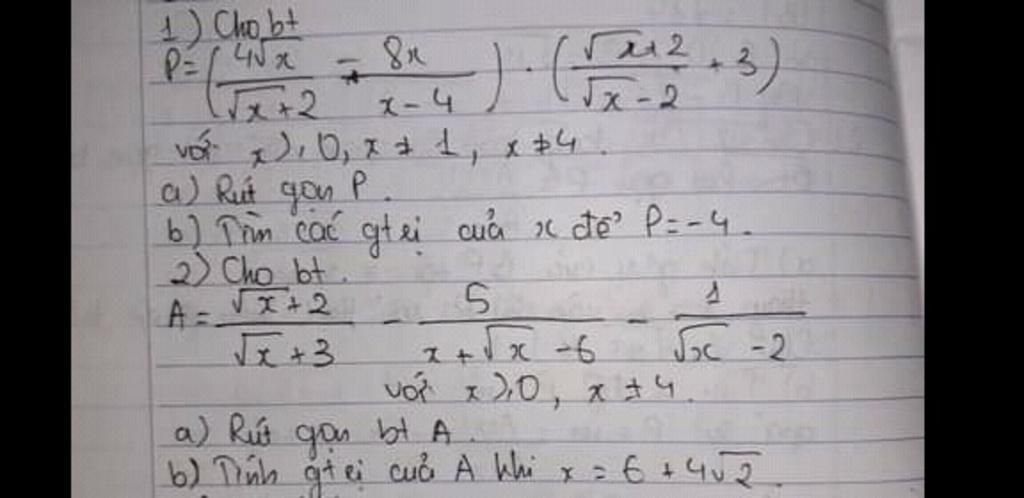 1) Cho bt
P = (4√x / √x + 2 - 8x / x - 4) . (√x + 2 / √x - 2 + 3)
với x ⩾ 0, x ≠ 1, x ≠ 4.
a) Rút gọn P.
b) Tìm các gtrị của x để P = -4.
2) Cho bt.
A = √x + 2 / √x + 3 - 5 / x + √x - 6 - 1 / √x - 2
với x ⩾ 0, x ≠ 4.
a) Rút gọn bt A.
b) Tính gtrị của A khi x = 6 + 4√2.